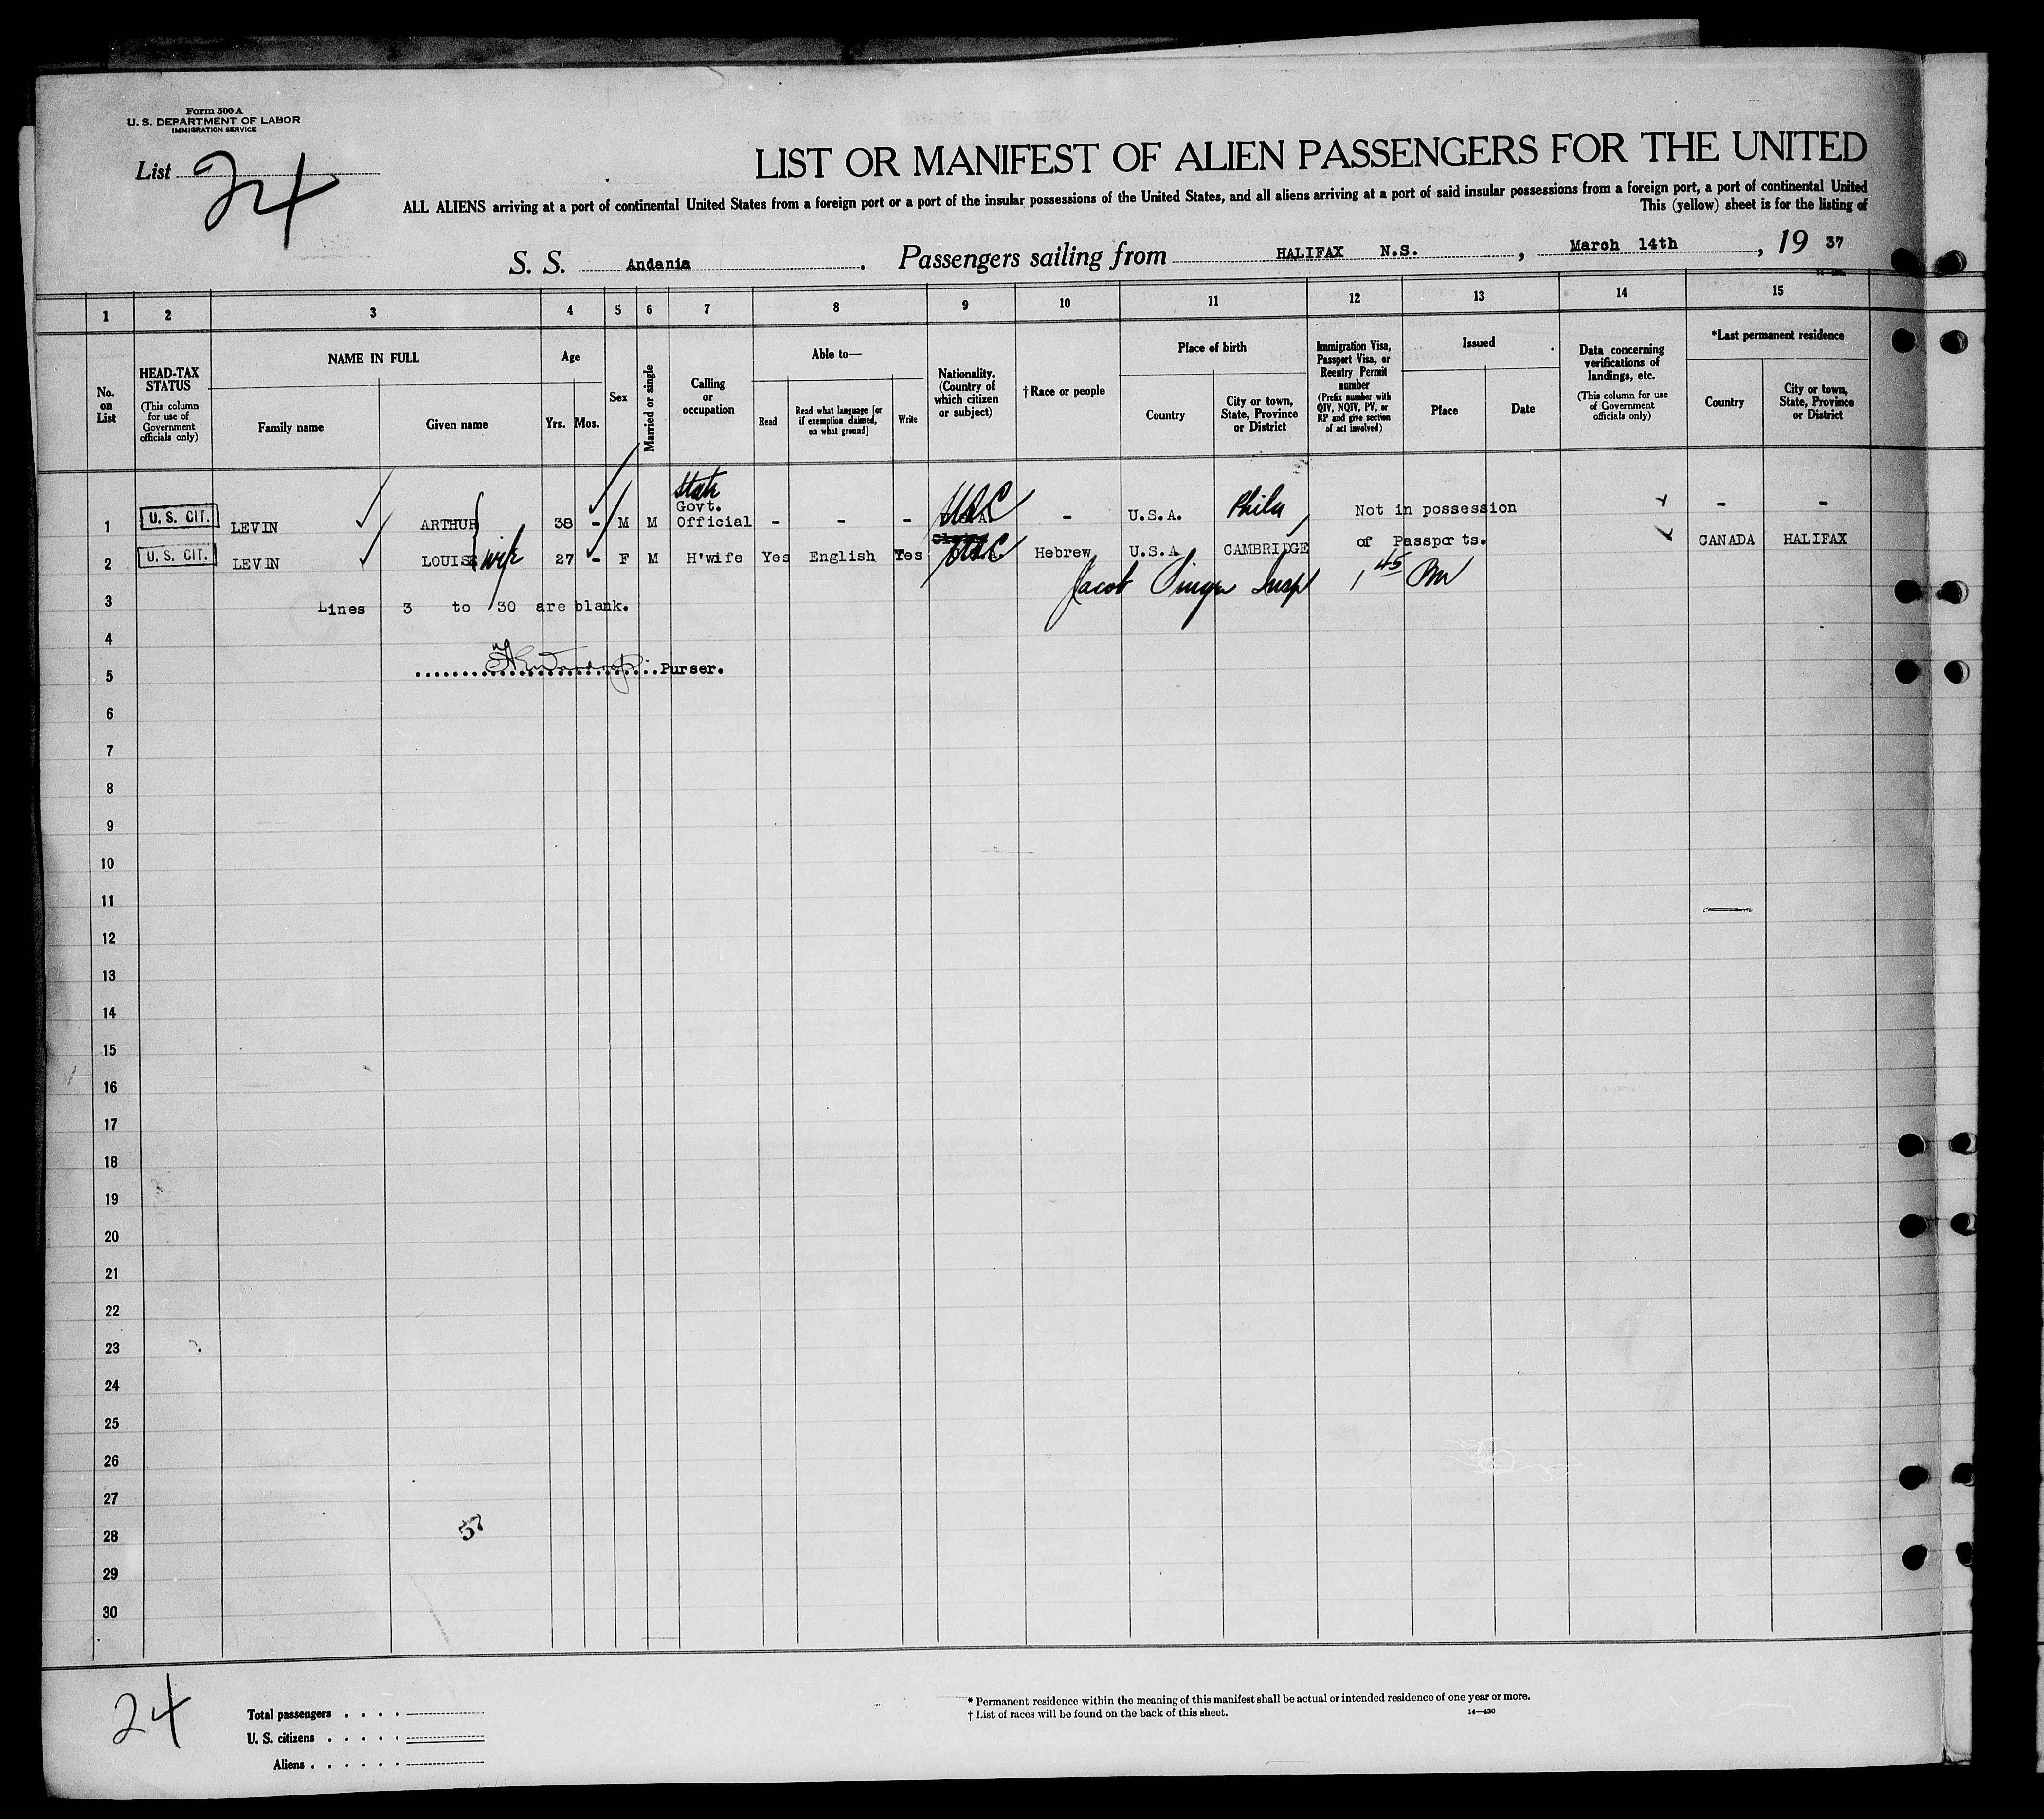 Form 500 A
U. S. DEPARTMENT OF LABOR
IMMIGRATION SERVICE
List 24
LIST OR MANIFEST OF ALIEN PASSENGERS FOR THE UNITED
ALL ALIENS arriving at a port of continental United States from a foreign port or a port of the insular possessions of the United States, and all aliens arriving at a port of said insular possessions from a foreign port, a port of continental United
This (yellow) sheet is for the listing of
S. S. Andania . Passengers sailing from HALIFAX N.S. , March 14th , 19 37
1 2 3 4 5 6 7 8 9 10 11 12 13 14 15
No. on List
HEAD-TAX STATUS
(This column for use of Government officials only)
NAME IN FULL
Family name
Given name
Age
Yrs. Mos.
Sex
Married or single
Calling or occupation
Able to—
Read
Read what language [or if exemption claimed, on what ground]
Write
Nationality. (Country of which citizen or subject)
† Race or people
Place of birth
Country
City or town, State, Province or District
Immigration Visa, Passport Visa, or Reentry Permit number
(Prefix number with QIV, NQIV, PV, or RP and give section of act involved)
Issued
Place
Date
Data concerning verifications of landings, etc.
(This column for use of Government officials only)
*Last permanent residence
Country
City or town, State, Province or District
1 U. S. CIT. LEVIN ARTHUR 38 - M M State Govt. Official - - - U.S.A. USC - U.S.A. Phila Not in possession - -
2 U. S. CIT. LEVIN LOUISE wife 27 - F M H'wife Yes English Yes USC Hebrew U.S.A. CAMBRIDGE of Passports. CANADA HALIFAX
Jacob Singer Insp 1 45 PM
3 Lines 3 to 30 are blank.
4
5 Purser.
6
7
8
9
10
11
12
13
14
15
16
17
18
19
20
21
22
23
24
25
26
27
28
57
29
30
24
Total passengers
U. S. citizens
Aliens
* Permanent residence within the meaning of this manifest shall be actual or intended residence of one year or more.
† List of races will be found on the back of this sheet.
14—430